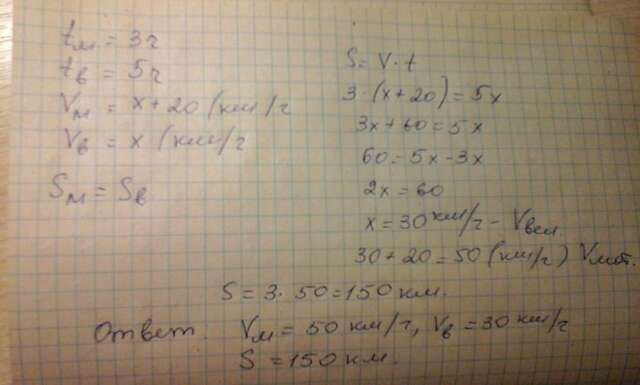 tм = 3ч
tв = 5ч
Vм = x+20 (км/ч
Vв = x (км/ч
Sм = Sв
S = V·t
3·(x+20) = 5x
3x+60=5x
60=5x-3x
2x=60
x=30 км/ч - Vвел.
30+20=50(км/ч) Vмот.
S=3·50=150 км.
Ответ. Vм = 50 км/ч, Vв = 30 км/ч
S = 150 км.